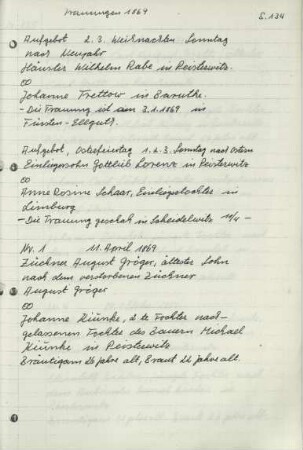 Trauungen 1869
S. 134
Aufgebot 2. 3. Weihnachten Sonntag
nach Neujahr
Häusler Wilhelm Rabe in Peisterwitz.
∞
Johanne Trettow in
- Die Trauung ist am 3.1.1869 in
Fürsten-Ellguth.
Aufgebot, Osterfeiertag 1. u. 3. Sonntag nach Ostern
Einliegersohn Gottlieb Lorenz in Peisterwitz
∞
Anne Rosine Schaar, Einliegertochter in
Limburg
- Die Trauung geschah in Scheidelwitz
Nr. 1 11. April 1869
Züchner August Gröger, ältester Sohn
nach dem verstorbenen Züchner
August Gröger
∞
Johanne Kiunke, 2 te Tochter nach-
gelassenen Tochter des Bauern Michael
Kiunke in Peisterwitz
Bräutigam 26 Jahre alt, Braut 26 Jahre alt.